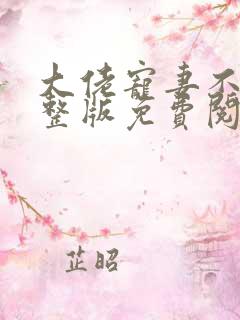 大佬寵妻不
整版免費閱
芷昭